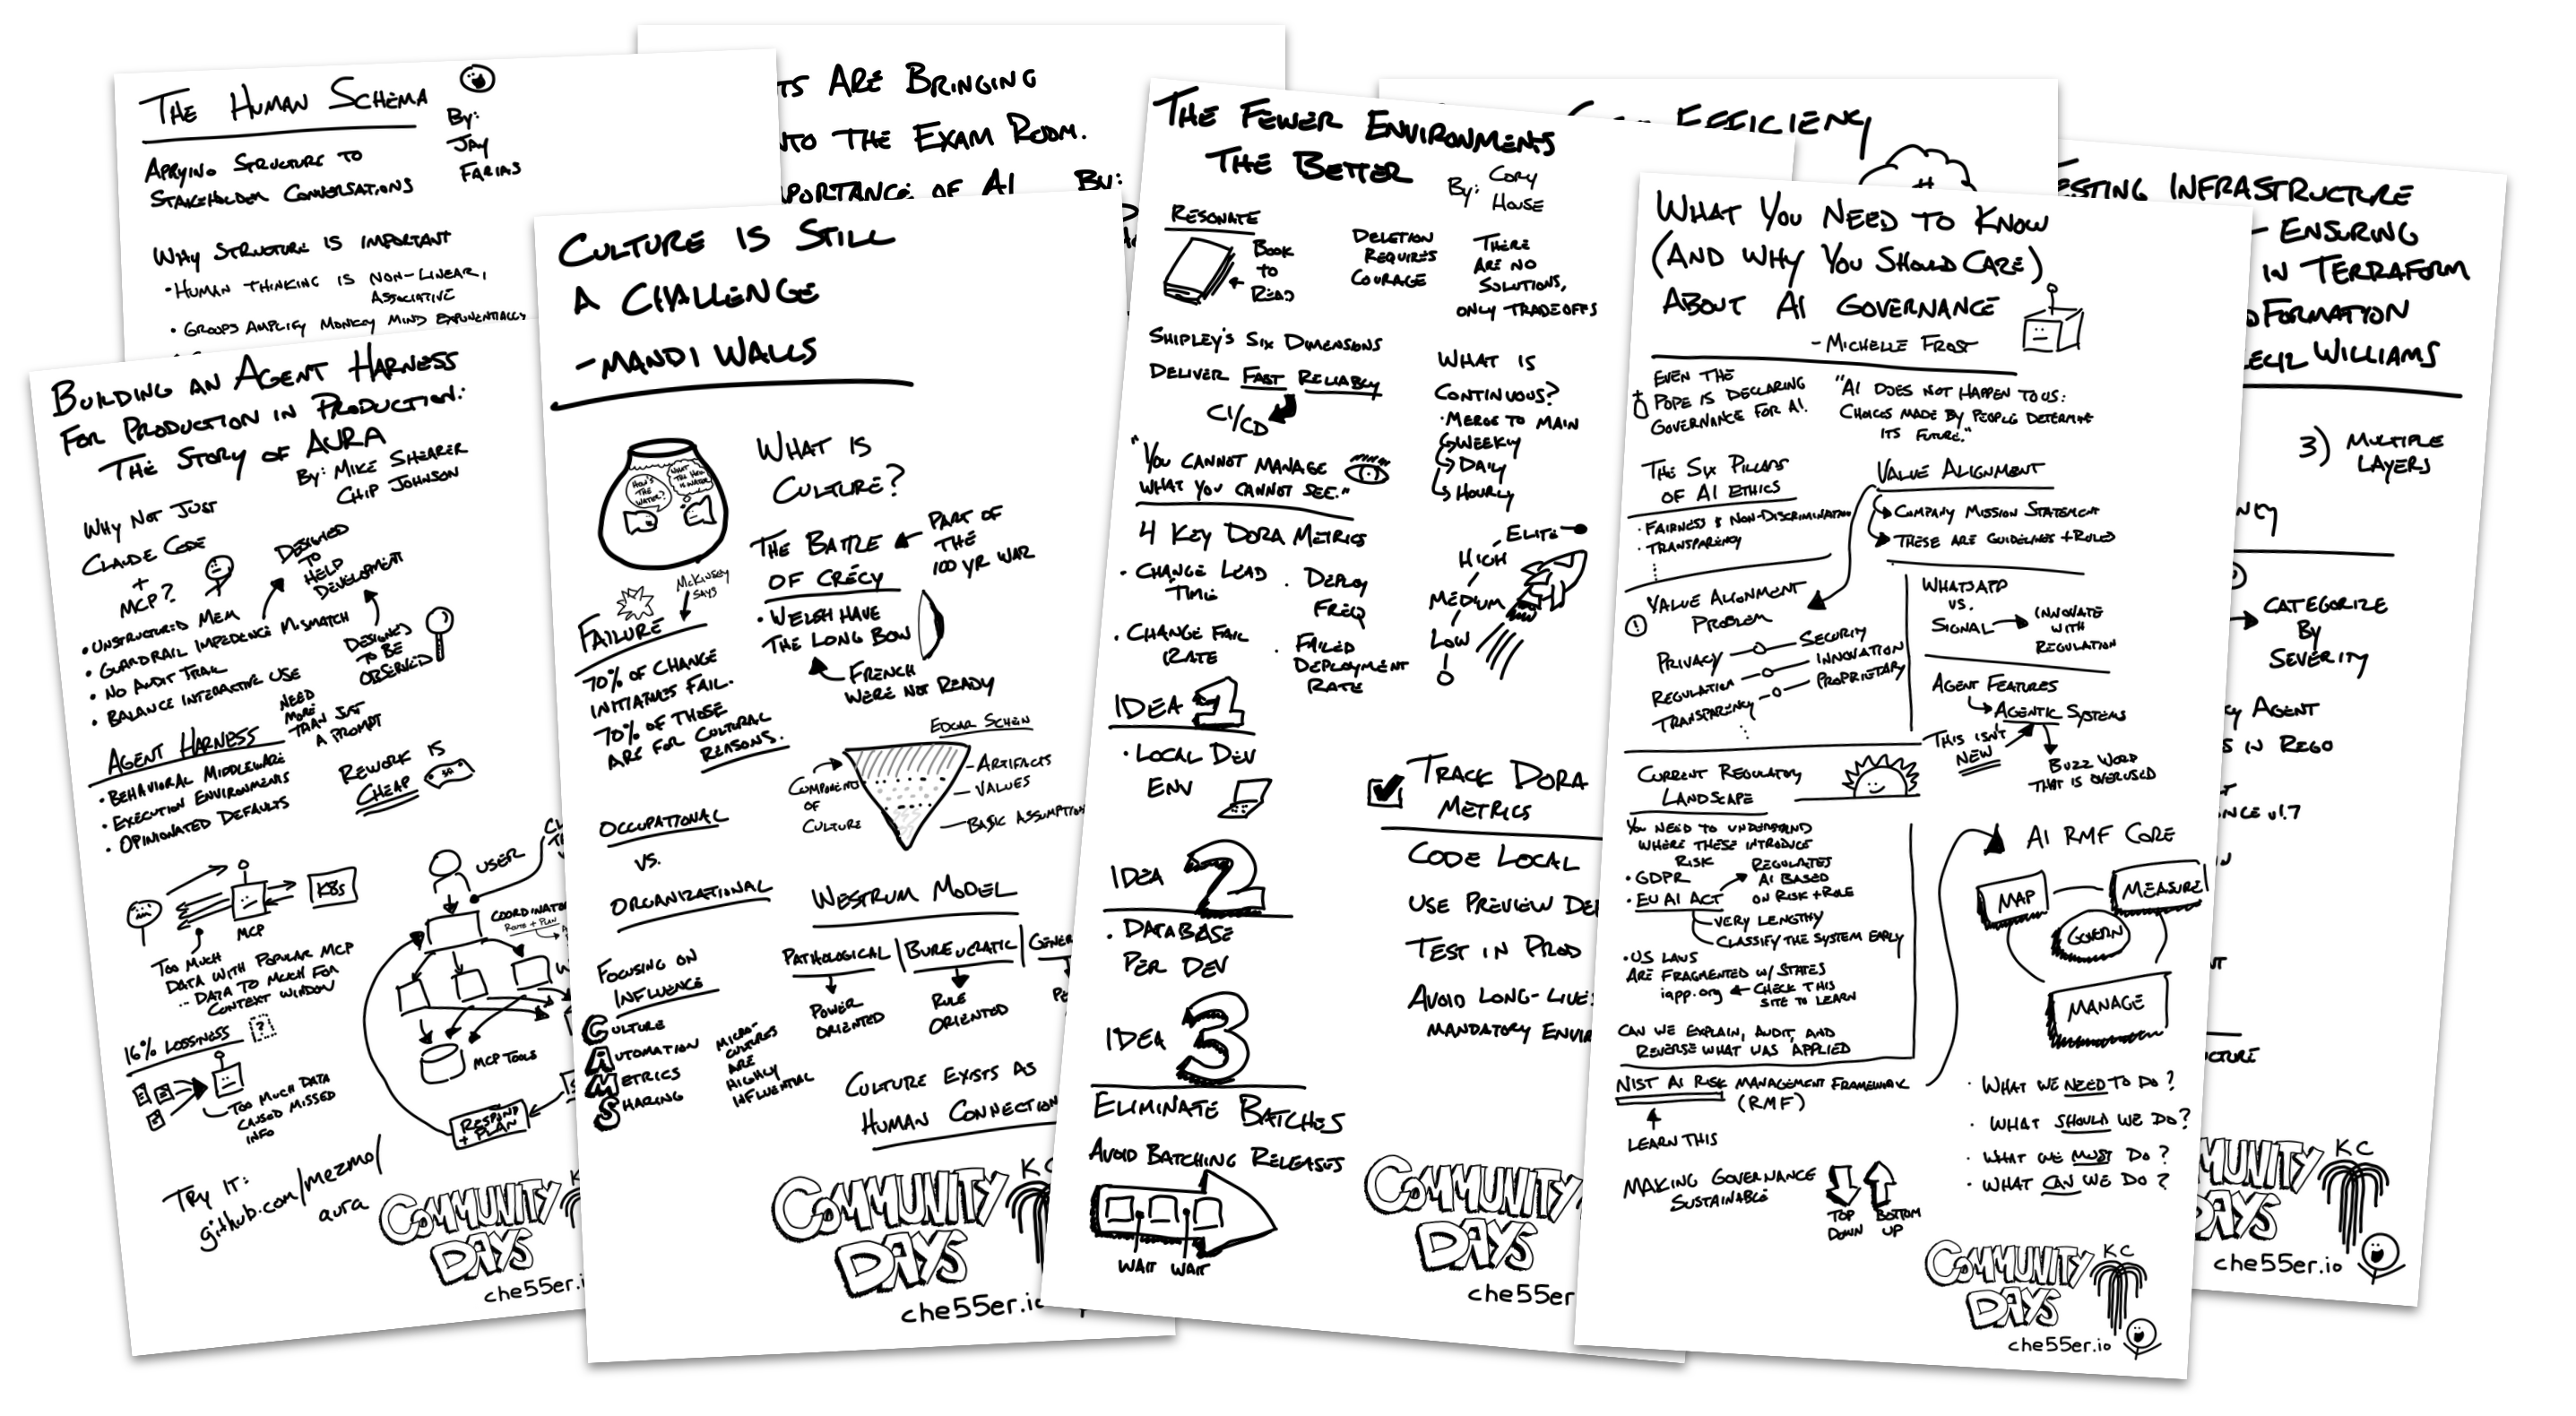 THE HUMAN SCHEMA
By:
JAY
FARIAS
APPLYING STRUCTURE TO
STAKEHOLDER CONVERSATIONS
WHY STRUCTURE IS IMPORTANT
• HUMAN THINKING IS NON-LINEAR,
ASSOCIATIVE
• GROUPS AMPLIFY MONKEY MIND EXPONENTIALLY
TS ARE BRINGING
NTO THE EXAM ROOM.
PORTANCE OF AI BY:
BUILDING AN AGENT HARNESS
FOR PRODUCTION IN PRODUCTION:
THE STORY OF AURA
BY: MIKE SHEARER
CHIP JOHNSON
WHY NOT JUST
CLAUDE CODE
+
MCP?
DESIGNED
TO
HELP
DEVELOPMENT
• UNSTRUCTURED MEM
• GUARDRAIL IMPEDENCE MISMATCH
• NO AUDIT TRAIL
• BALANCE INTERACTIVE USE
DESIGNED
TO BE
OBSERVED
AGENT HARNESS
NEED
MORE
THAN JUST
A PROMPT
• BEHAVIORAL MIDDLEWARE
• EXECUTION ENVIRONMENTS
• OPINIONATED DEFAULTS
REWORK IS
CHEAP
K8s
MCP
TOO MUCH
DATA WITH POPULAR MCP
... DATA TO MUCH FOR
CONTEXT WINDOW
16% LOSSINESS
?
TOO MUCH DATA
CAUSED MISSED
INFO
USER
COORDINATOR
ROUTE + PLAN
MCP TOOLS
RESPOND
+ PLAN
TRY IT:
github.com/mezmo/
aura
COMMUNITY
DAYS
che55er.i
CULTURE IS STILL
A CHALLENGE
- MANDI WALLS
HOW'S
THE
WATER?
WHAT THE HELL
IS WATER
WHAT IS
CULTURE?
THE BATTLE
OF CRÉCY
PART OF
THE
100 YR WAR
• WELSH HAVE
THE LONG BOW
FRENCH
WERE NOT READY
MCKINSEY
SAYS
FAILURE
70% OF CHANGE
INITIATIVES FAIL.
70% OF THOSE
ARE FOR CULTURAL
REASONS.
EDGAR SCHEIN
COMPONENTS
OF
CULTURE
- ARTIFACTS
- VALUES
- BASIC ASSUMPTION
OCCUPATIONAL
VS.
ORGANIZATIONAL
WESTRUM MODEL
PATHOLOGICAL | BUREUCRATIC | GENER
POWER
ORIENTED
RULE
ORIENTED
FOCUSING ON
INFLUENCE
CULTURE
AUTOMATION
METRICS
SHARING
MICRO-
CULTURES
ARE
HIGHLY
INFLUENTIAL
CULTURE EXISTS AS
HUMAN CONNECTION
COMMUNITY KC
DAYS
che55er.io
THE FEWER ENVIRONMENTS
THE BETTER
BY: CORY
HOUSE
RESONATE
BOOK
TO
READ
DELETION
REQUIRES
COURAGE
THERE
ARE NO
SOLUTIONS,
ONLY TRADEOFFS
SHIPLEY'S SIX DIMENSIONS
DELIVER FAST RELIABLY
CI/CD
"YOU CANNOT MANAGE
WHAT YOU CANNOT SEE."
WHAT IS
CONTINUOUS?
• MERGE TO MAIN
WEEKLY
DAILY
HOURLY
4 KEY DORA METRICS
• CHANGE LEAD
TIME
• DEPLOY
FREQ
• CHANGE FAIL
RATE
• FAILED
DEPLOYMENT
RATE
ELITE
HIGH
MEDIUM
LOW
IDEA 1
• LOCAL DEV
ENV
IDEA 2
• DATABASE
PER DEV
IDEA 3
ELIMINATE BATCHES
AVOID BATCHING RELEASES
WAIT WAIT
TRACK DORA
METRICS
CODE LOCAL
USE PREVIEW DE
TEST IN PROD
AVOID LONG-LIVE
MANDATORY ENVI
COMMUNITY
DAYS
che55er
EFFICIENCY
#
WHAT YOU NEED TO KNOW
(AND WHY YOU SHOULD CARE)
ABOUT AI GOVERNANCE
- MICHELLE FROST
EVEN THE
POPE IS DECLARING
GOVERNANCE FOR AI.
"AI DOES NOT HAPPEN TO US:
CHOICES MADE BY PEOPLE DETERMINE
ITS FUTURE."
THE SIX PILLARS
OF AI ETHICS
• FAIRNESS & NON-DISCRIMINATION
• TRANSPARENCY
VALUE ALIGNMENT
COMPANY MISSION STATEMENT
THESE ARE GUIDELINES + RULES
! VALUE ALIGNMENT
PROBLEM
PRIVACY SECURITY
REGULATION INNOVATION
TRANSPARENCY PROPRIETARY
WHATSAPP
VS.
SIGNAL
INNOVATE
WITH
REGULATION
AGENT FEATURES
AGENTIC SYSTEMS
THIS ISN'T
NEW
BUZZ WORD
THAT IS OVERUSED
CURRENT REGULATORY
LANDSCAPE
YOU NEED TO UNDERSTAND
WHERE THESE INTRODUCE
RISK
• GDPR
• EU AI ACT
REGULATES
AI BASED
ON RISK + ROLE
VERY LENGTHY
CLASSIFY THE SYSTEM EARLY
• US LAWS
ARE FRAGMENTED W/ STATES
iapp.org CHECK THIS
SITE TO LEARN
CAN WE EXPLAIN, AUDIT, AND
REVERSE WHAT WAS APPLIED
NIST AI RISK MANAGEMENT FRAMEWORK
(RMF)
LEARN THIS
MAKING GOVERNANCE
SUSTAINABLE
TOP
DOWN
BOTTOM
UP
AI RMF CORE
MAP
MEASURE
GOVERN
MANAGE
• WHAT WE NEED TO DO?
• WHAT SHOULD WE DO?
• WHAT WE MUST DO?
• WHAT CAN WE DO?
COMMUNITY KC
DAYS
che55er.io
ESTING INFRASTRUCTURE
- ENSURING
IN TERRAFORM
DFORMATION
ECIL WILLIAMS
3) MULTIPLE
LAYERS
NCY
CATEGORIZE
BY
SEVERITY
CY AGENT
S IN REGO
NCE v1.7
CTURE
MUNITY KC
DAYS
che55er.io